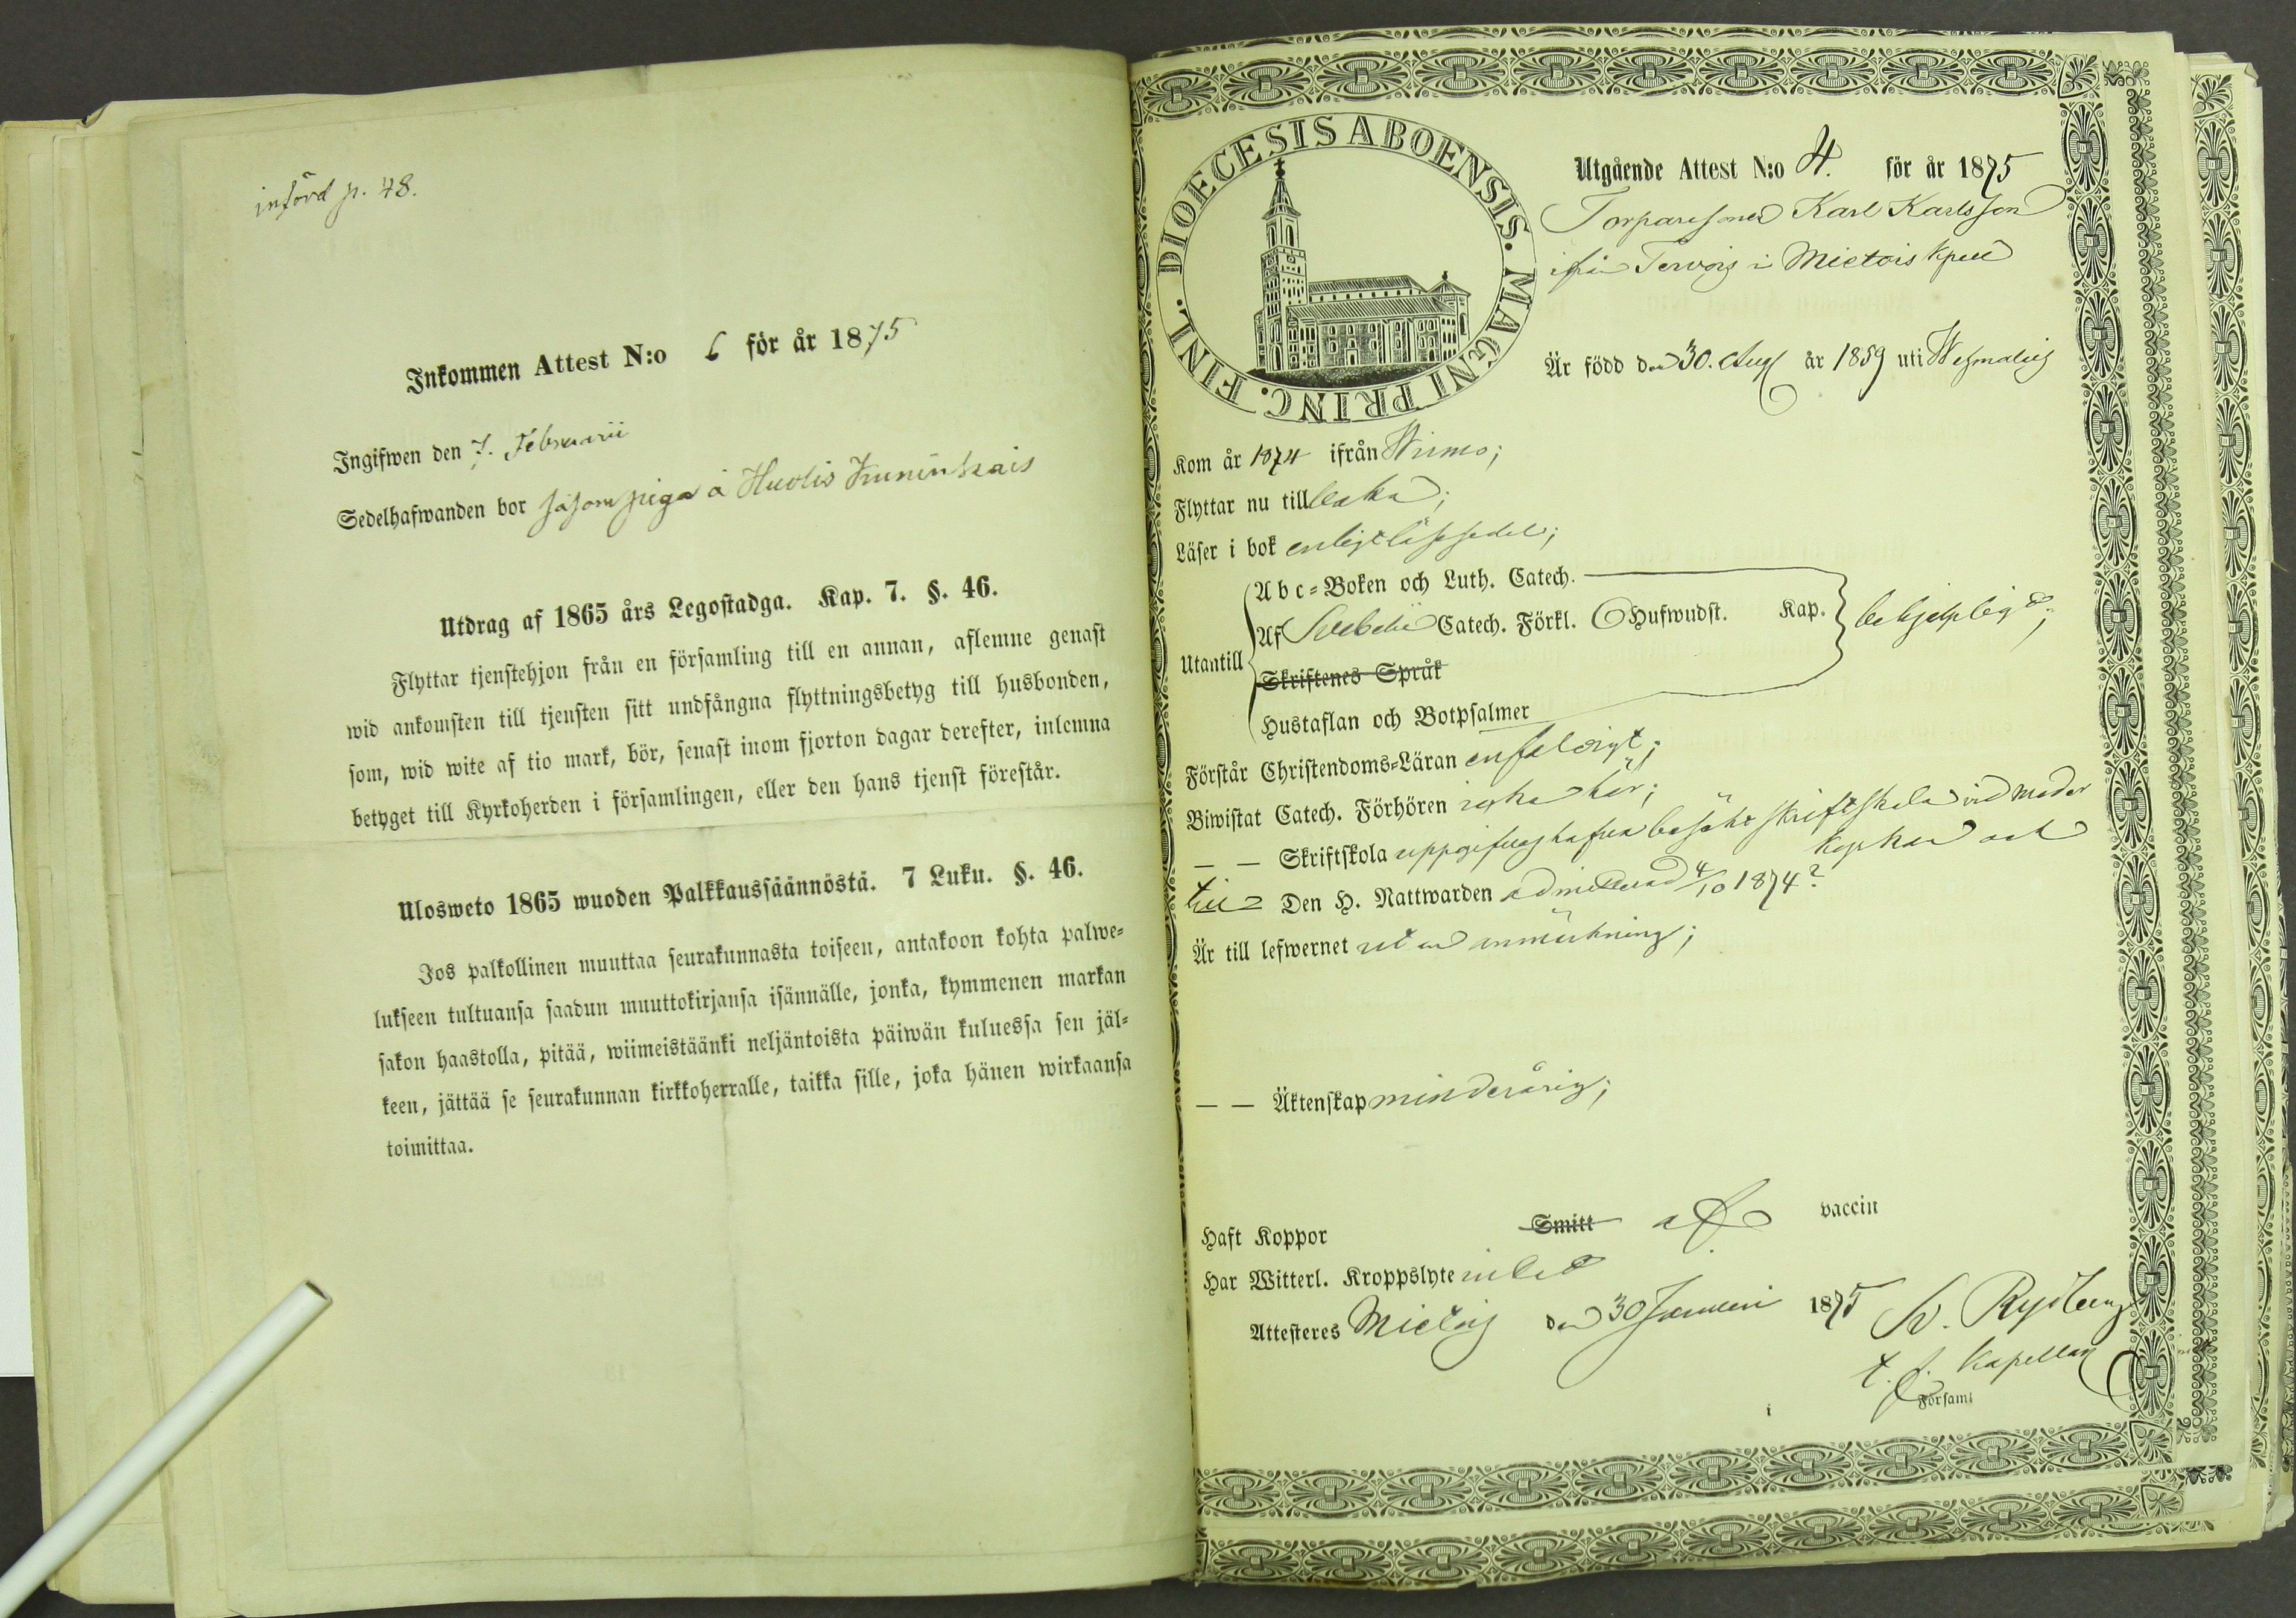 införd p. 48.
Inkommen Attest N:o 6 för år 1875
Ingifwen den 7. Februarii
Sedelhafwanden bor såsom piga å Huolis Kuninkais
Utdrag af 1865 års Legostadga. Kap. 7. §. 46.
Flyttar tjenstehjon från en församling till en annan, aflemne genast
wid ankomsten till tjensten sitt undfångna flyttningsbetyg till husbonden,
som, wid wite af tio mark, bör, senast inom fjorton dagar derefter, inlemna
betyget till Kyrkoherden i församlingen, eller den hans tjenst förestår.
Ulosweto 1865 wuoden Palkkaussäännöstä. 7 Luku. §. 46.
Jos palkollinen muuttaa seurakunnasta toiseen, antakoon kohta palwe-
lukseen tultuansa saadun muuttokirjansa isännälle, jonka, kymmenen markan
sakon haastolla, pitää, wiimeistäänki neljäntoista päiwän kuluessa sen jäl-
keen, jättää se seurakunnan kirkkoherralle, taikka sille, joka hänen wirkaansa
toimittaa.
DIOECESIS ABOENSIS. MAGNI PRINC. FINL.
Utgående Attest N:o 4. för år 1875
Torparesonen Karl Karlsson
ifrån Tervois i Mietois kpell
Är född den 30. Aug år 1859 uti Wehmalais
Kom år 1874 ifrån Wirmo;
Flyttar nu till Laka;
Läser i bok enligt läsesedel;
Abc-Boken och Luth. Catech.
Utantill Af Svebelii Catech. Förkl. Hufwudst. Kap. behjelpligt;
Skriftenes Språk
Hustaflan och Botpsalmer
Förstår Christendoms-Läran enfaldigt;
Biwistat Catech. Förhören icke här;
— — Skriftskola uppgifves hafva besökt skriftskola vid moder
kyrkan och
till Den H. Nattwarden admitterad 4/10 1874?
Är till lefwernet utan anmärkning;
— — Äktenskap minderårig;
Haft Koppor Smitt af vaccin
Har Witterl. Kroppslyte intet
Attesteres Mietois den 30 Januari 1875
t. f. Kapellan
i Församl